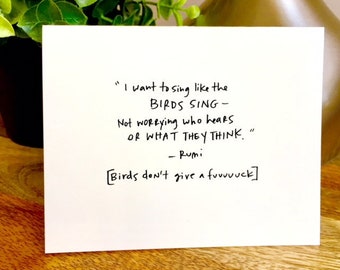 "I want to sing like the
BIRDS SING –
Not worrying who hears
OR WHAT THEY THINK."
– Rumi
[Birds don't give a fuuuuuck]